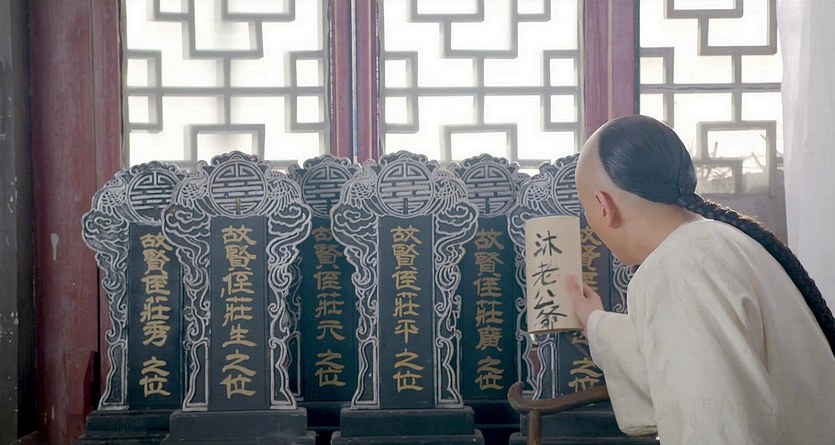 故賢侄莊秀之位
故賢侄莊生之位
故賢侄莊元之位
故賢侄莊平之位
故賢侄莊廣之位
沐老公爺